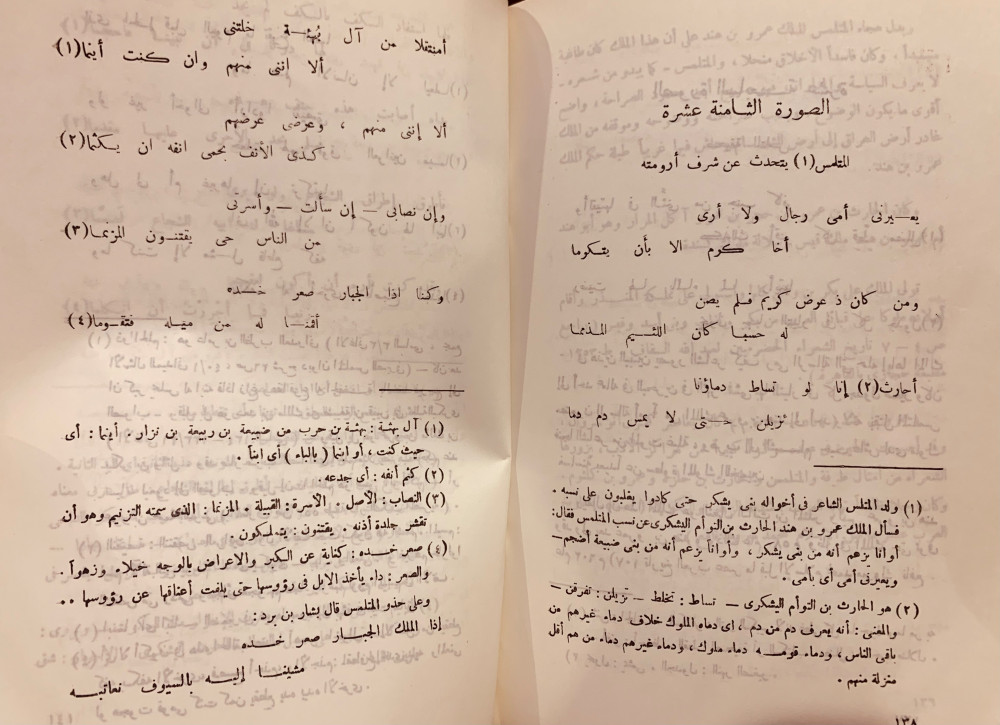 الصورة الثامنة عشرة
المتلمس (١) يتحدث عن شرف أرومته
يعيرنى أمى رجال ولا أرى
أخا كرم الا بأن يتكرما
ومن كان ذ عرض كريم فلم يصن
له حسبا كان اللئيم المذمما
أحارث (٢) إنا لو تساط دماؤنا
تزيلن حتى لا يمس دم دما
(١) ولد المتلمس الشاعر فى أخواله بنى يشكر حتى كادوا يغلبون على نسبه .
فسأل الملك عمرو بن هند الحارث بن التوأم اليشكرى عن نسب المتلمس فقال:
أوانا يزعم أنه من بنى يشكر ، وأوانا يزعم أنه من بنى ضبيعة أضجم —
ويعيرنى أمى أى بأمى .
(٢) هو الحارث بن التوأم اليشكرى — تساط : تختلط — تزيلن : تفرقن —
والمعنى : أنه يعرف دم من دم ، اى دماه الملوك خلاف دماء غيرهم من
باقى الناس ، ودماء قومه دماء ملوك ، ودماء غيرهم دماء من هم أقل
منزلة منهم .
١٣٨
أمنتفلا من آل بهثة خلتنى
ألا اننى منهم وان كنت أينما (١)
ألا إننى منهم ، وعرضى عرضهم
كذى الأنف يحمى انفه ان يكثما (٢)
وإن نصابى — إن سألت — وأسرتى
من الناس حى يقتنون المزنما (٣)
وكنا اذا الجبار صعر خده
أقمنا له من ميله فتقوما (٤)
(١) آل بهثة : بهثة بن حرب من ضبيعة بن ربيعة بن نزار . أينما : أى
حيث كنت ، أو ابنما ( بالباء ) أى ابناً .
(٢) كثم أنفه : أى جدعه .
(٣) النصاب : الأصل . الأسرة : القبيلة . المزنما : الذى سمته التزنيم وهو أن
تقشر جلدة أذنه . يقتنون : يتملكون .
(٤) صعر خده : كناية عن الكبر والاعراض بالوجه خيلاء وزهواً .
والصعر : داء يأخذ الابل فى رؤوسها حتى يلفت أعناقها عن رؤوسها ..
وعلى حذو المتلمس قال بشار بن برد :
إذا الملك الجبار صعر خده
مشينا إليه بالسيوف نعاتبه